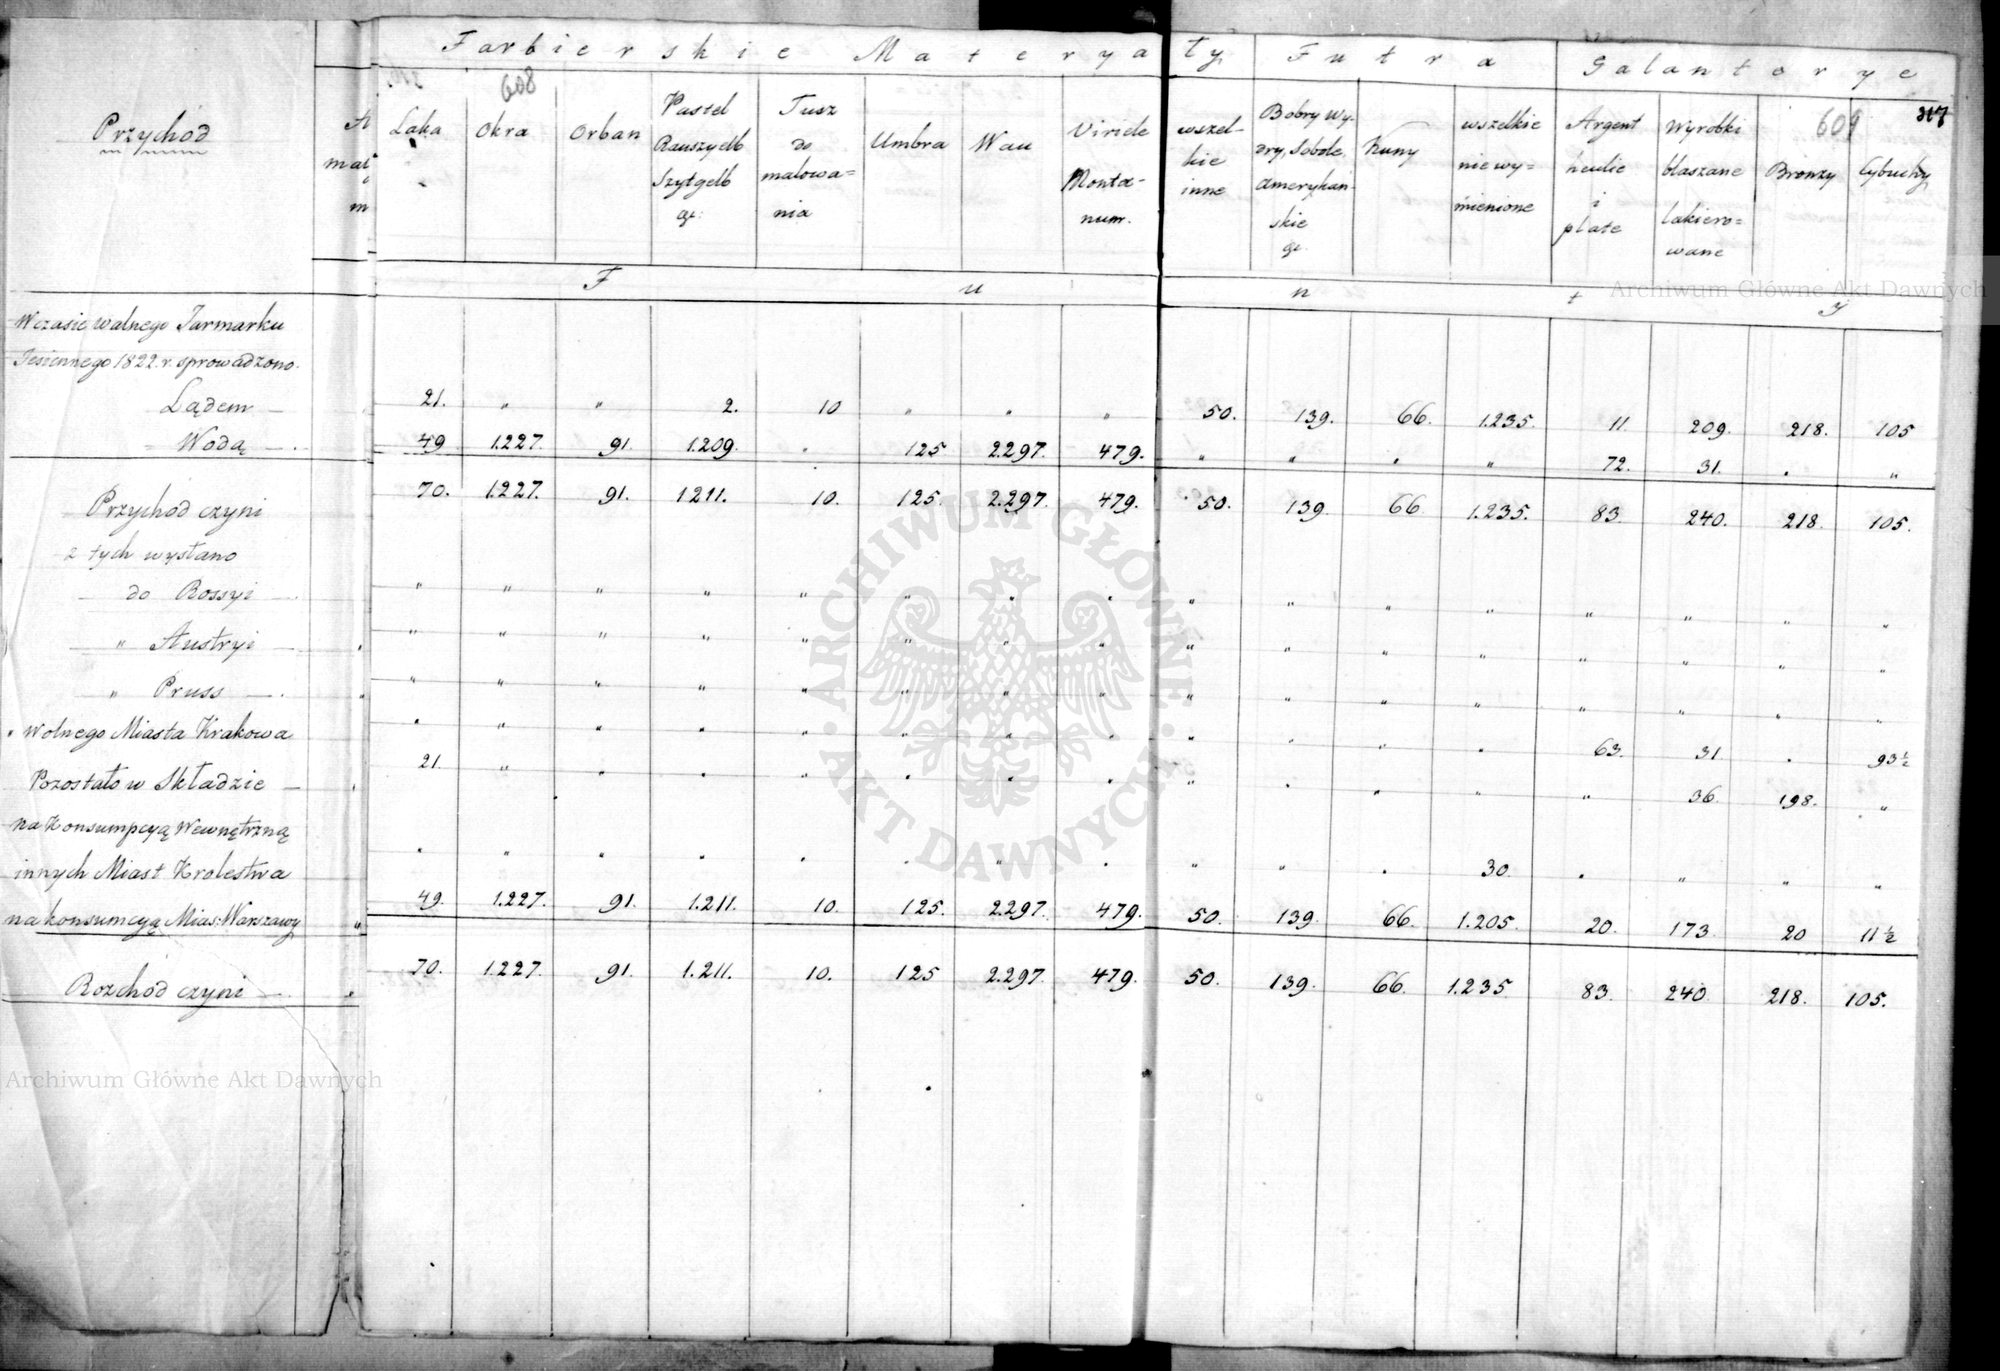 Farbierskie Materyały, Futra Galanterye
608 609 317
Przychód
Laka Okra Orban Pastel Rauszyelb Szytgelb &: Tusz do malowa= nia Umbra Wau Viride Monta- num. wszel- kie inne Bobry Wy- dry, Sobole, Amerykań skie &. Kuny wszelkie nie wy- mienione Argent heulie i plate Wyrobki blaszane lakiero= wane Bronzy Cybuchy
F u n t y
W czasie walnego Jarmarku
Jesiennego 1822. r. sprowadzono.
Lądem — 21. " " 2. 10 " " " 50. 139. 66. 1.235. 11 209. 218. 105
Wodą — 49 1.227. 91. 1.209. " 125 2.297. 479. " " " " 72. 31. " "
Przychód czyni 70. 1.227. 91. 1211. 10. 125. 2.297. 479. 50. 139. 66 1.235. 83. 240. 218. 105.
z tych wysłano
do Rossyi — " " " " " " " " " " " " " " " "
" Austryi — " " " " " " " " " " " " " " " "
" Pruss — " " " " " " " " " " " " " " " "
" Wolnego Miasta Krakowa " " " " " " " " " " " " 63. 31. " 93½
Pozostało w Składzie — 21. " " " " " " " " " " " " 36. 198. "
na Konsumpcyą Wewnętrzną
innych Miast Krolestwa " " " " " " " " " " " 30. " " " "
na konsumcyą Mias: Warszawy 49. 1.227. 91. 1.211. 10. 125. 2.297. 479. 50. 139. 66. 1.205. 20. 173 20 11½
Rozchód czyni — 70. 1.227. 91. 1.211. 10. 125 2.297. 479. 50. 139. 66. 1.235 83. 240. 218. 105.
Archiwum Główne Akt Dawnych
Archiwum Główne Akt Dawnych
ARCHIWUM GŁÓWNE AKT DAWNYCH